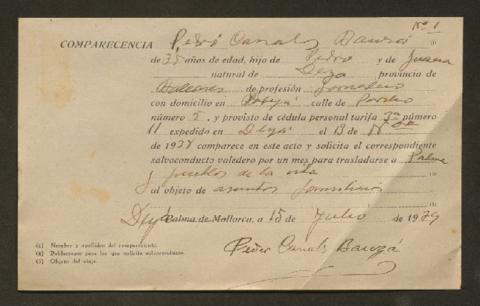 Nº 1
COMPARECENCIA Pedro Canals Bauzá (1)
de 35 años de edad, hijo de Pedro y de Juana
natural de Deya provincia de
Baleares de profesión Jornalero
con domicilio en Deyá calle de
número 5, y provisto de cédula personal tarifa 3ª número
11 expedido en Deyá el 13 de
de 1938 comparece en este acto y solicita el correspondiente
salvoconducto valedero por un mes para trasladarse a Palma
y pueblos de la isla
al objeto de asuntos familiares
Deyá Palma de Mallorca, a 15 de Julio de 1939
Pedro Canals Bauzá
(1) Nombre y apellidos del compareciente.
(2) Poblaciones para las que solicita salvoconducto.
(3) Objeto del viaje.